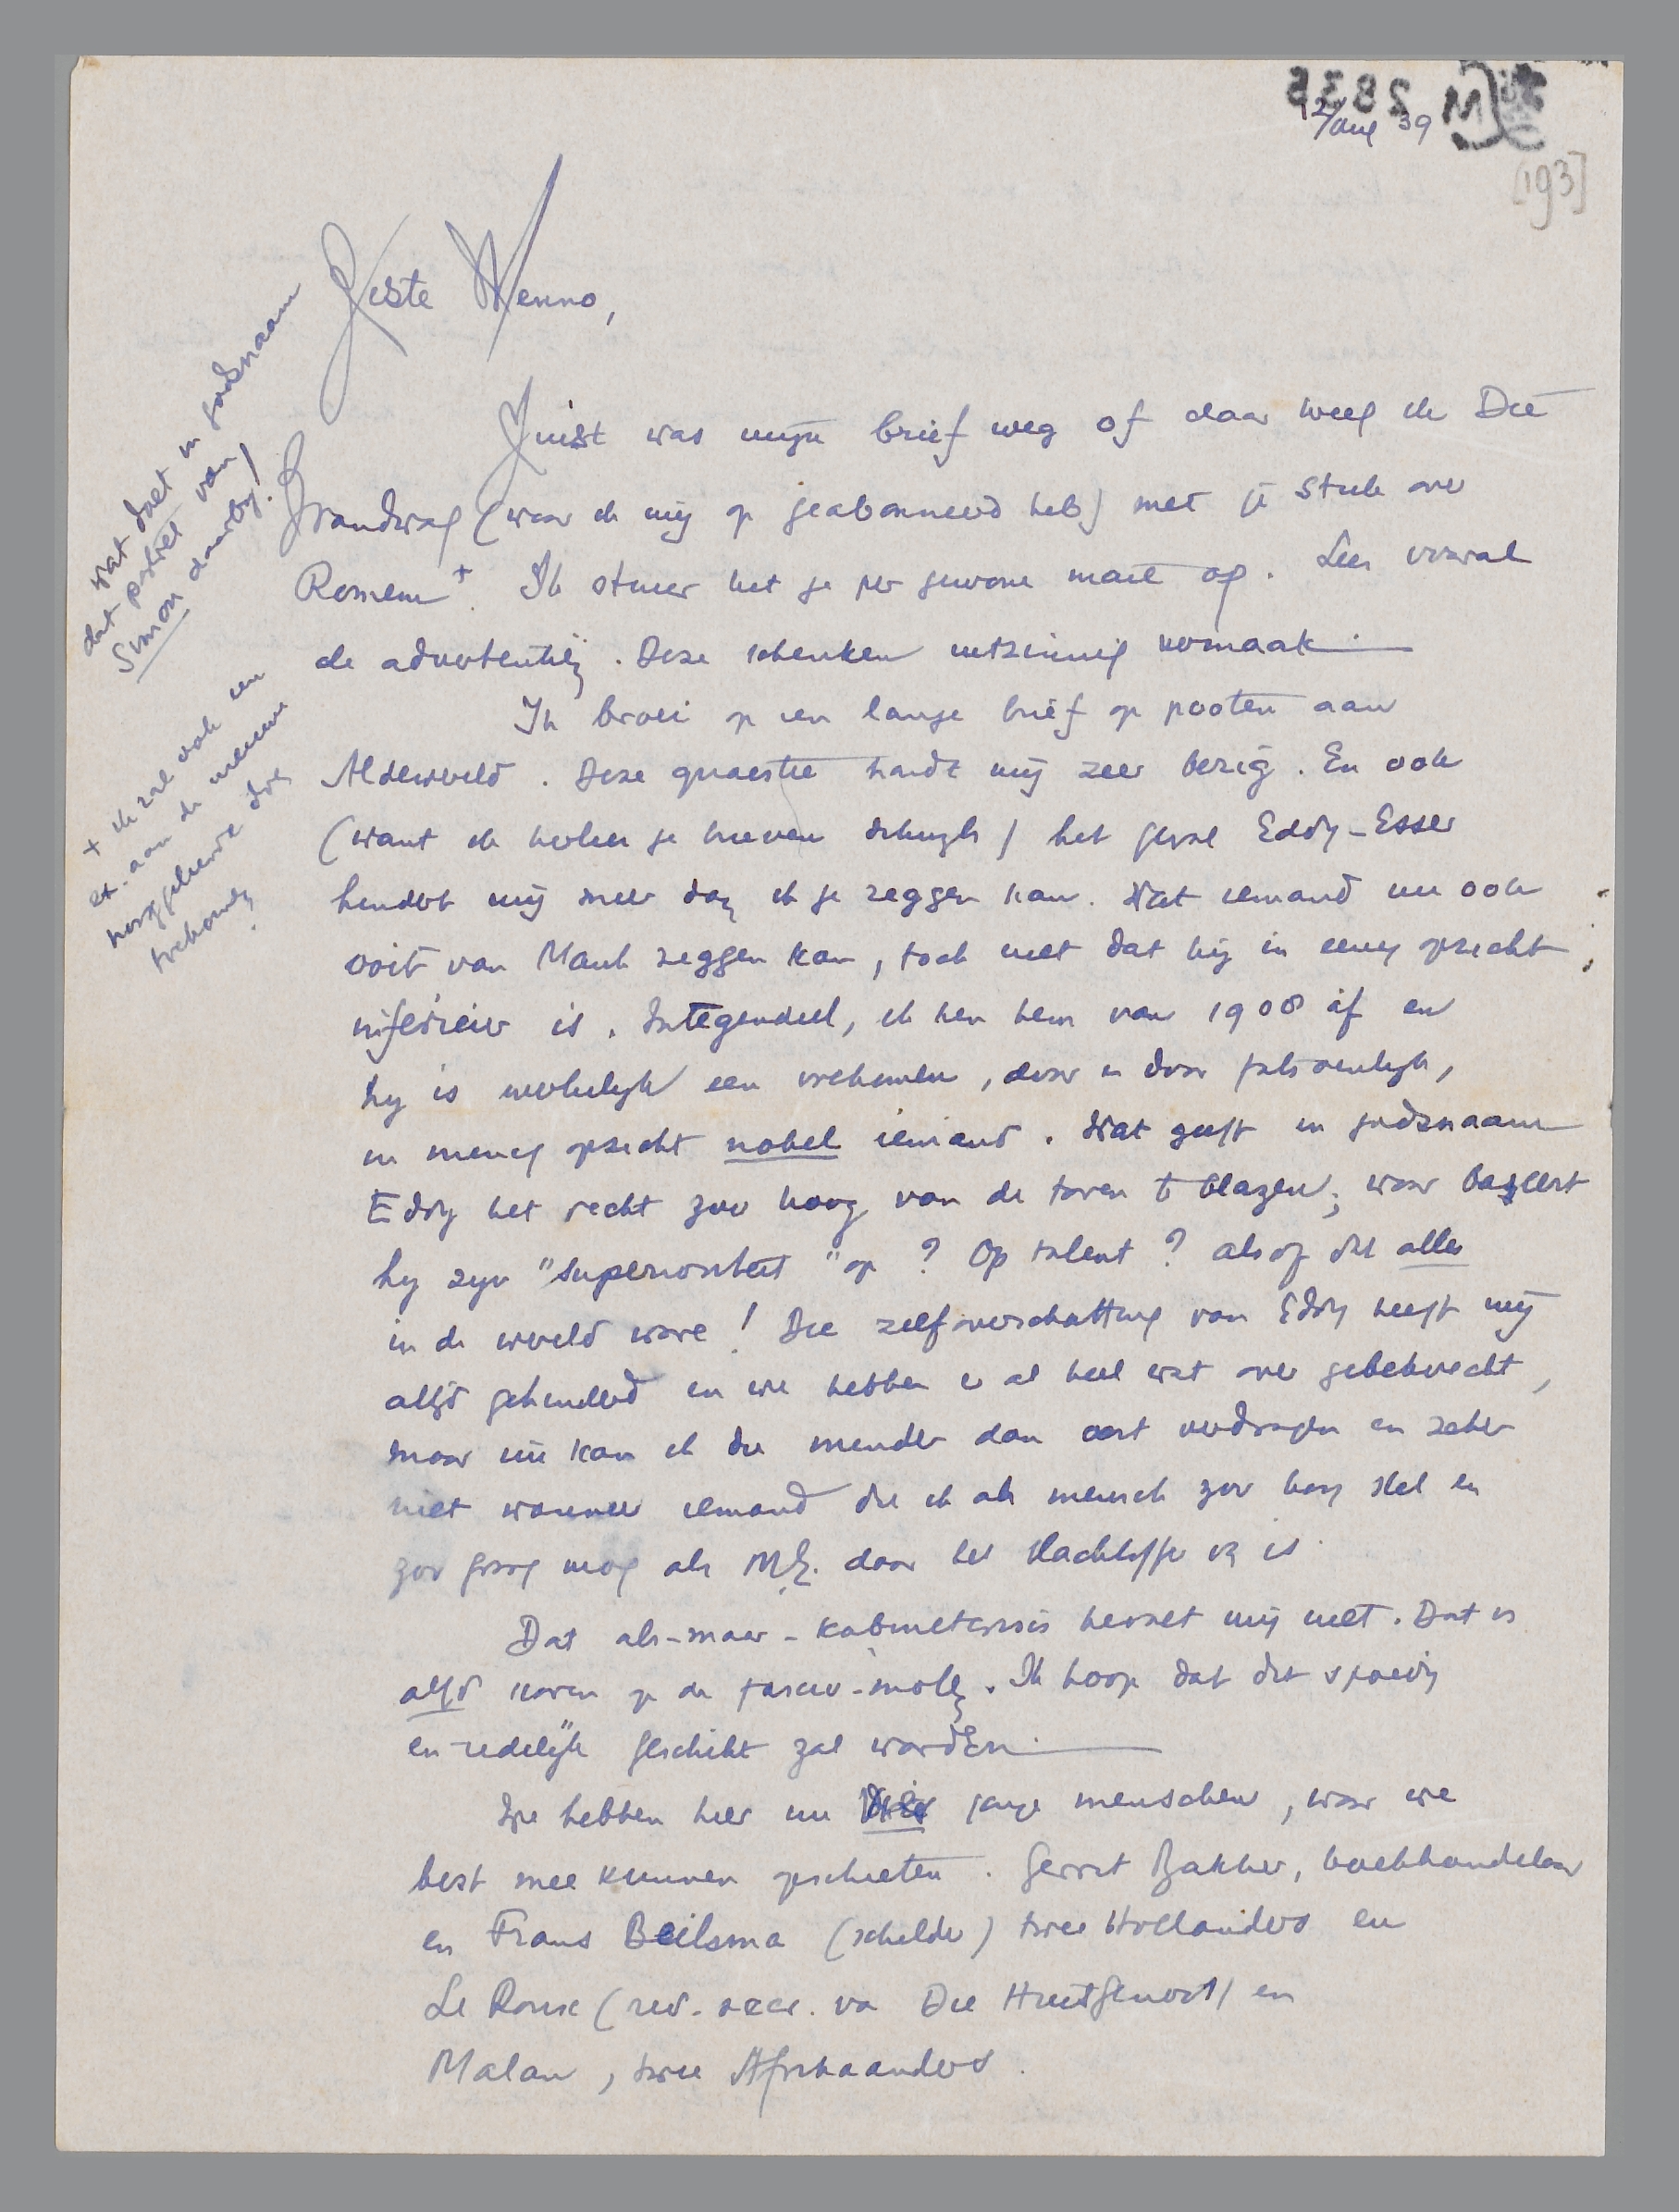 12/Aug 39
[193]
Beste Menno,
Juist was mijn brief weg of daar kreeg ik Die
Brandwag (waar ik mij op geabonneerd heb) met je stuk over
Romein +. Ik stuur het je per gewone mail op. Lees vooral
de advertentiën. Deze schenken uitzinnig vermaak.
Ik broei op een lange brief op pooten aan
Alderweld. Deze quaestie houdt mij zeer bezig. En ook
(want ik herlees je brieven dikwijls) het geval Eddy-Esser
hindert mij meer dan ik je zeggen kan. Wat iemand nu ook
ooit van Mauk zeggen kan, toch niet dat hij in eenig opzicht
inferieur is. Integendeel, ik ken hem van 1908 af en
hij is werkelijk een volkomen, door en door fatsoenlijk,
in menig opzicht nobel iemand. Wat geeft in godsnaam
Eddy het recht zoo hoog van de toren te blazen; waar baseert
hij zijn "superioriteit" op? Op talent? alsof dit alles
in de wereld ware! Die zelfoverschatting van Eddy heeft mij
altijd gehinderd en we hebben er al heel wat over gebekvecht,
maar nu kan ik die minder dan ooit verdragen en zeker
niet wanneer iemand die ik als mensch zoo hoog stel en
zoo graag mag als M.E. daar het slachtoffer van is.
Dat als-maar-kabinetcrisis bevalt mij niet. Dat is
altijd koren op de fascio-molen. Ik hoop dat dit spoedig
en redelijk geschikt zal worden.
We hebben hier nu vier jonge menschen, waar we
best mee kunnen opschieten. Gerrit Bakker, boekhandelaar
en Frans Beilsma (schilder) twee Hollanders en
Le Roux (red. secr. van Die Huisgenoot) en
Malan, twee Afrikaanders.
wat doet in godsnaam
dat portret van
Simon daarbij!
+ ik zal ook een
ex. aan de nieuwe
hooggeleerde doen
toekomen.